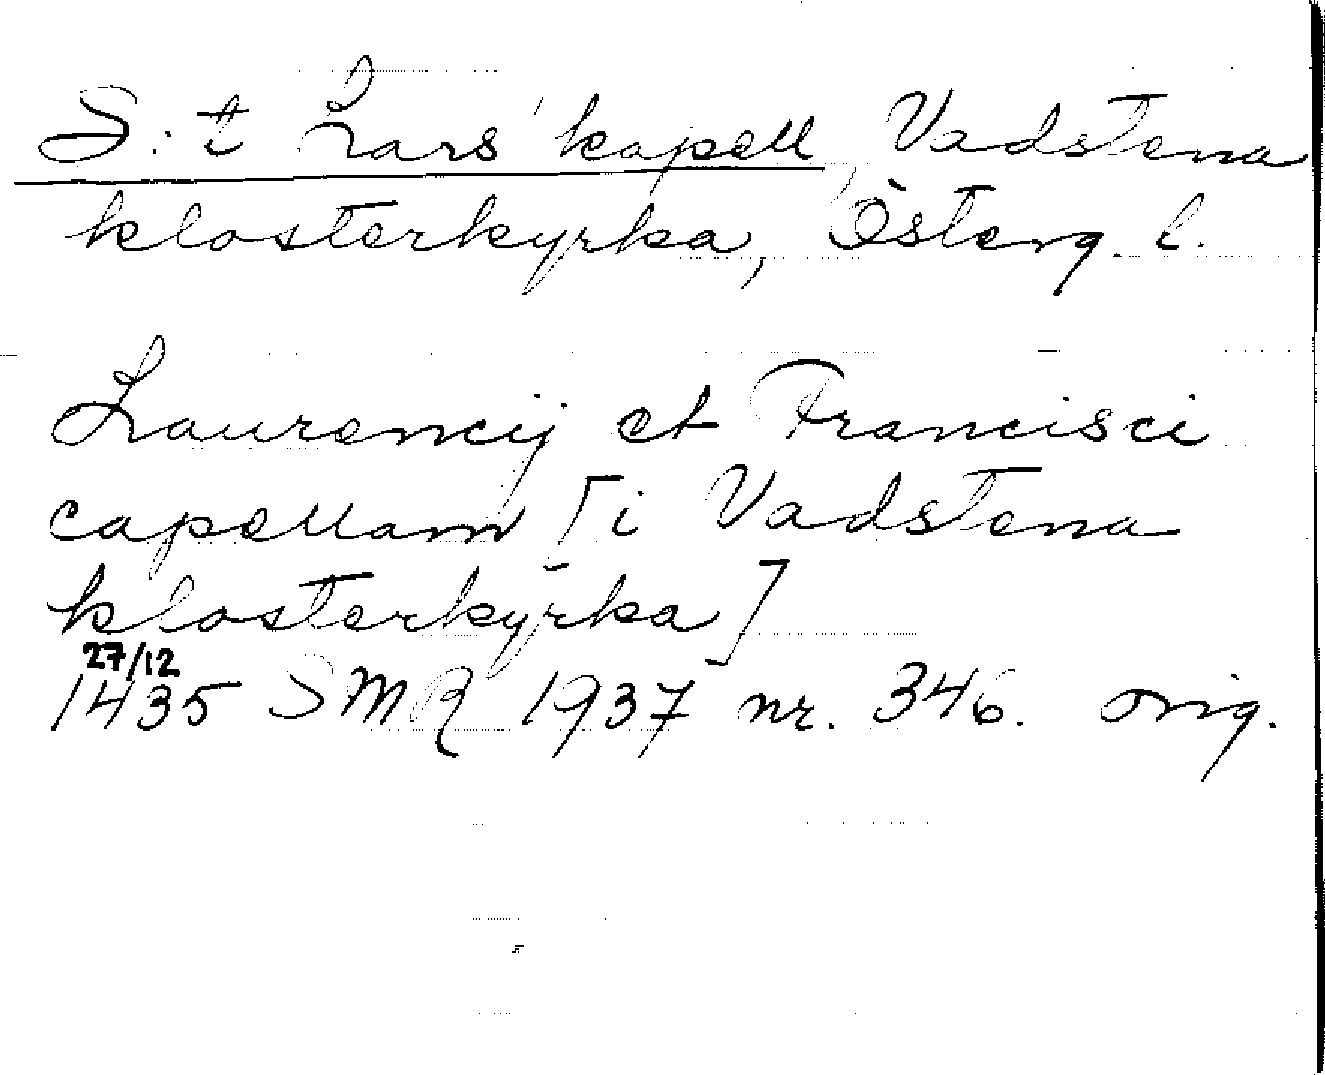 S:t Lars' kapell, Vadstena
klosterkyrka, Österg. l.
Laurencij et Francisci
capellam [i Vadstena
klosterkyrka]
27/12
1435 SMR 1937 nr. 346. orig.